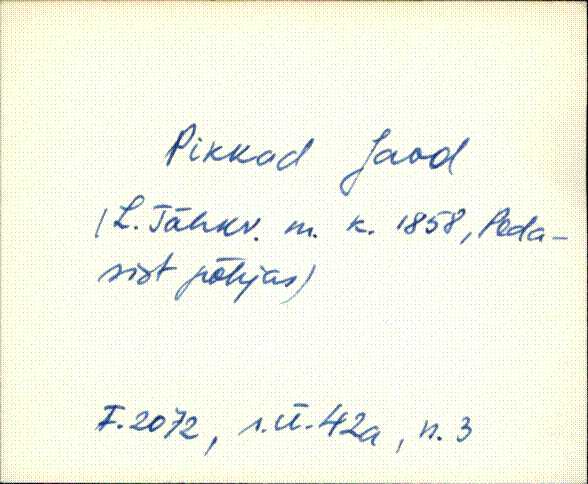 Pikkad Jaod
(L. Tähkv. m. k. 1858, Peda-
sist põhjas)
F. 2072, s.ü. 42a, n. 3